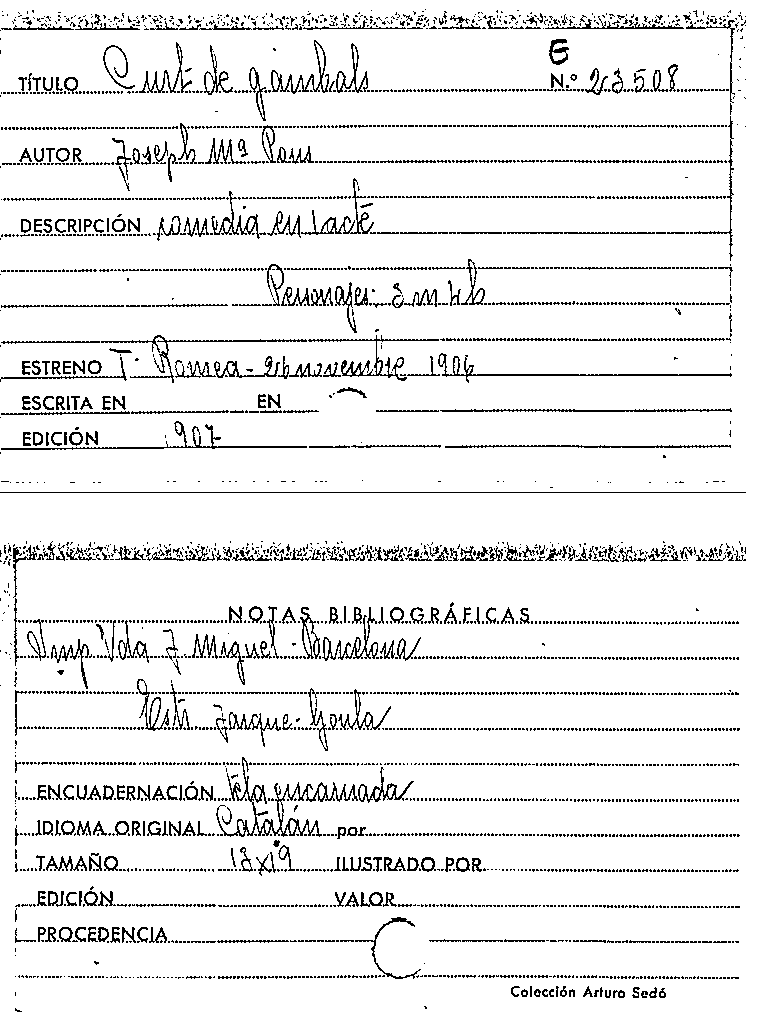 G
TÍTULO Curt de gambals N.º 23508
AUTOR Joseph Mª Pons
DESCRIPCIÓN comedia en 1 acte
Personajes: 3 m 4 h
ESTRENO T. Romea - 26 novembre 1906
ESCRITA EN EN
EDICIÓN 1907
NOTAS BIBLIOGRÁFICAS
Imp Vda J Miguel - Barcelona
Estr. Jarque - Goula
ENCUADERNACIÓN tela encarnada
IDIOMA ORIGINAL Catalán por
TAMAÑO 13x19 ILUSTRADO POR
EDICIÓN VALOR
PROCEDENCIA
Colección Arturo Sedó